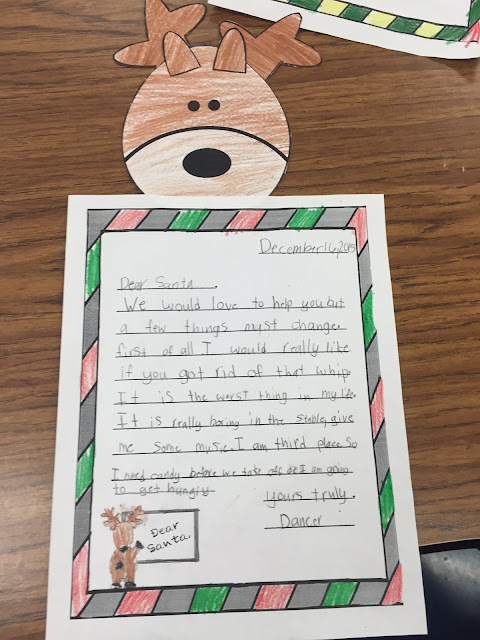 December 16, 2015
Dear Santa,
We would love to help you but
a few things myst change.
first of all I would really like
if you got rid of that whip.
It is the worst thing in my life.
It is really boring in the stable, give
me some music. I am third place so
I need candy before we take off or I am going
to get hungry
yours truly,
Dancer
Dear
Santa,